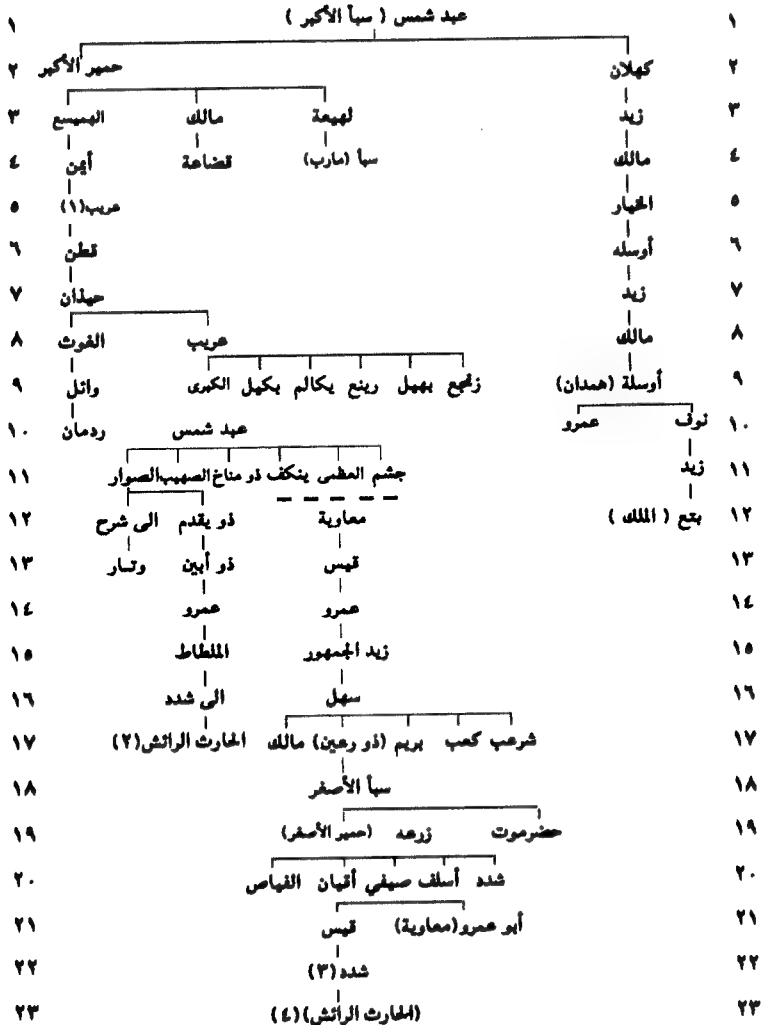 ١ عبد شمس ( سبأ الأكبر ) ١
٢ كهلان حمير الأكبر ٢
٣ زيد لهيعة مالك الهميسع ٣
٤ مالك سبأ (مارب) قضاعة أيمن ٤
٥ الخيار عريب(١) ٥
٦ أوسله قطن ٦
٧ زيد حيذان ٧
٨ مالك عريب الغوث ٨
٩ أوسلة (همدان) زنجع يهيل رينع يكالم بكيل الكبرى وائل ٩
١٠ نوف عمرو عبد شمس ردمان ١٠
١١ زيد جشم العظمى ينكف ذو مناخ الصهيب الصوار ١١
١٢ بتع ( الملك ) معاوية ذو يقدم الى شرح ١٢
١٣ قيس ذو أبين وتار ١٣
١٤ عمرو عمرو ١٤
١٥ زيد الجمهور الملطاط ١٥
١٦ سهل الى شدد ١٦
١٧ شرعب كعب يريم (ذو رعين) مالك الحارث الرائش(٢) ١٧
١٨ سبأ الأصغر ١٨
١٩ حضرموت زرعه (حمير الأصغر) ١٩
٢٠ شدد أسلف صيفي أقيان الفياص ٢٠
٢١ أبو عمرو(معاوية) قيس ٢١
٢٢ شدد(٣) ٢٢
٢٣ (الحارث الرائش)(٤) ٢٣